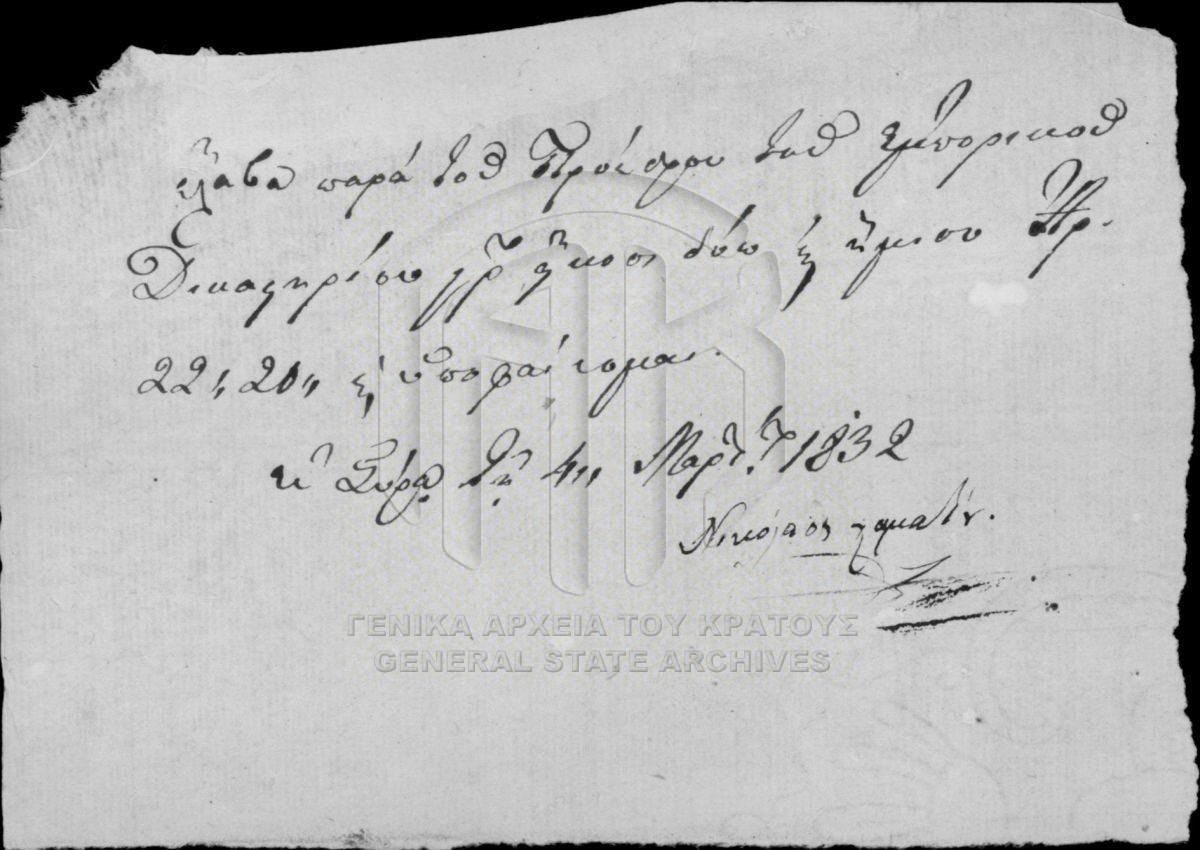 ἔλαβα παρά τοῦ Προέδρου τοῦ Ἐμπορικοῦ
Δικαστηρίου γρ ἤκοσι δύω ἤμισυ Γρ.
22,, 20,, ὑποφαίνομαι.
Σύρᾳ τῇ 4,, Μαρτ. 1832
Νικόλαος
ΓΕΝΙΚΑ ΑΡΧΕΙΑ ΤΟΥ ΚΡΑΤΟΥΣ
GENERAL STATE ARCHIVES